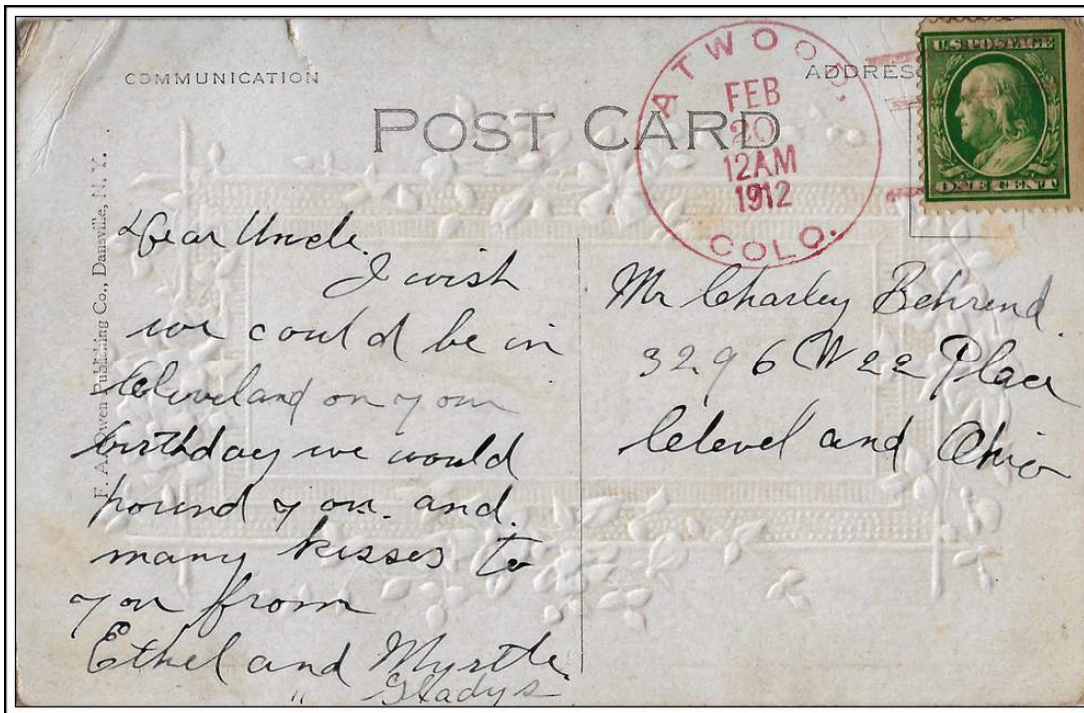 COMMUNICATION
POST CARD
ADDRESS
ATWOOD,
FEB
20
12AM
1912
COLO.
U.S. POSTAGE
ONE CENT
F. A. Owen Publishing Co., Dansville, N. Y.
Dear Uncle.
I wish
we could be in
Cleveland on your
birthday we would
pound you. and.
many kisses to
you from
Ethel and Myrtle.
" Gladys
Mr Charley Behrend
3296 W 22 Place
Clevel and Ohio